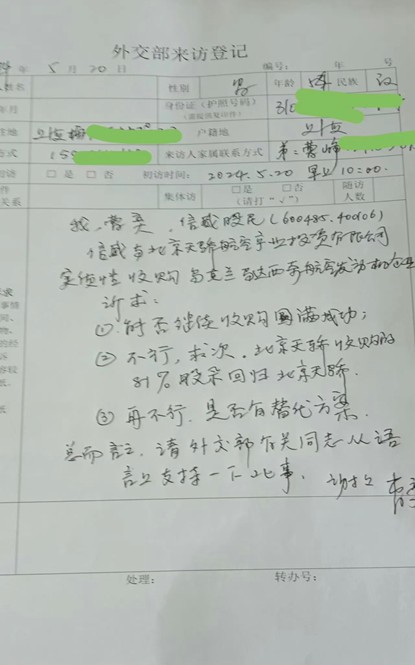 外交部来访登记
年 5月20日 编号: 年 号
人数名 性别 男 年龄 民族 汉
年月 身份证（护照号码） 310
住地 上海 户籍地 上海
方式 159 来访人家属联系方式 弟:曹峰
初访 □是 □否 初访时间: 2024.5.20 早上10:00.
件 集体访 □是 □否 随访
关系 （请打“√”） 人数
我,曹 , 信威股民(600485.400106)
信威与北京天骄航空产业投资有限公司
实质性收购乌克兰马达西奇航空发动机
诉求:
① 能否继续收购圆满成功;
② 不行,求次,北京天骄收购的
81%股票回归北京天骄.
③ 再不行,是否有替代方案.
总而言之,请外交部有关同志从语
言上支持一下此事. 谢谢
处理: 转办号: